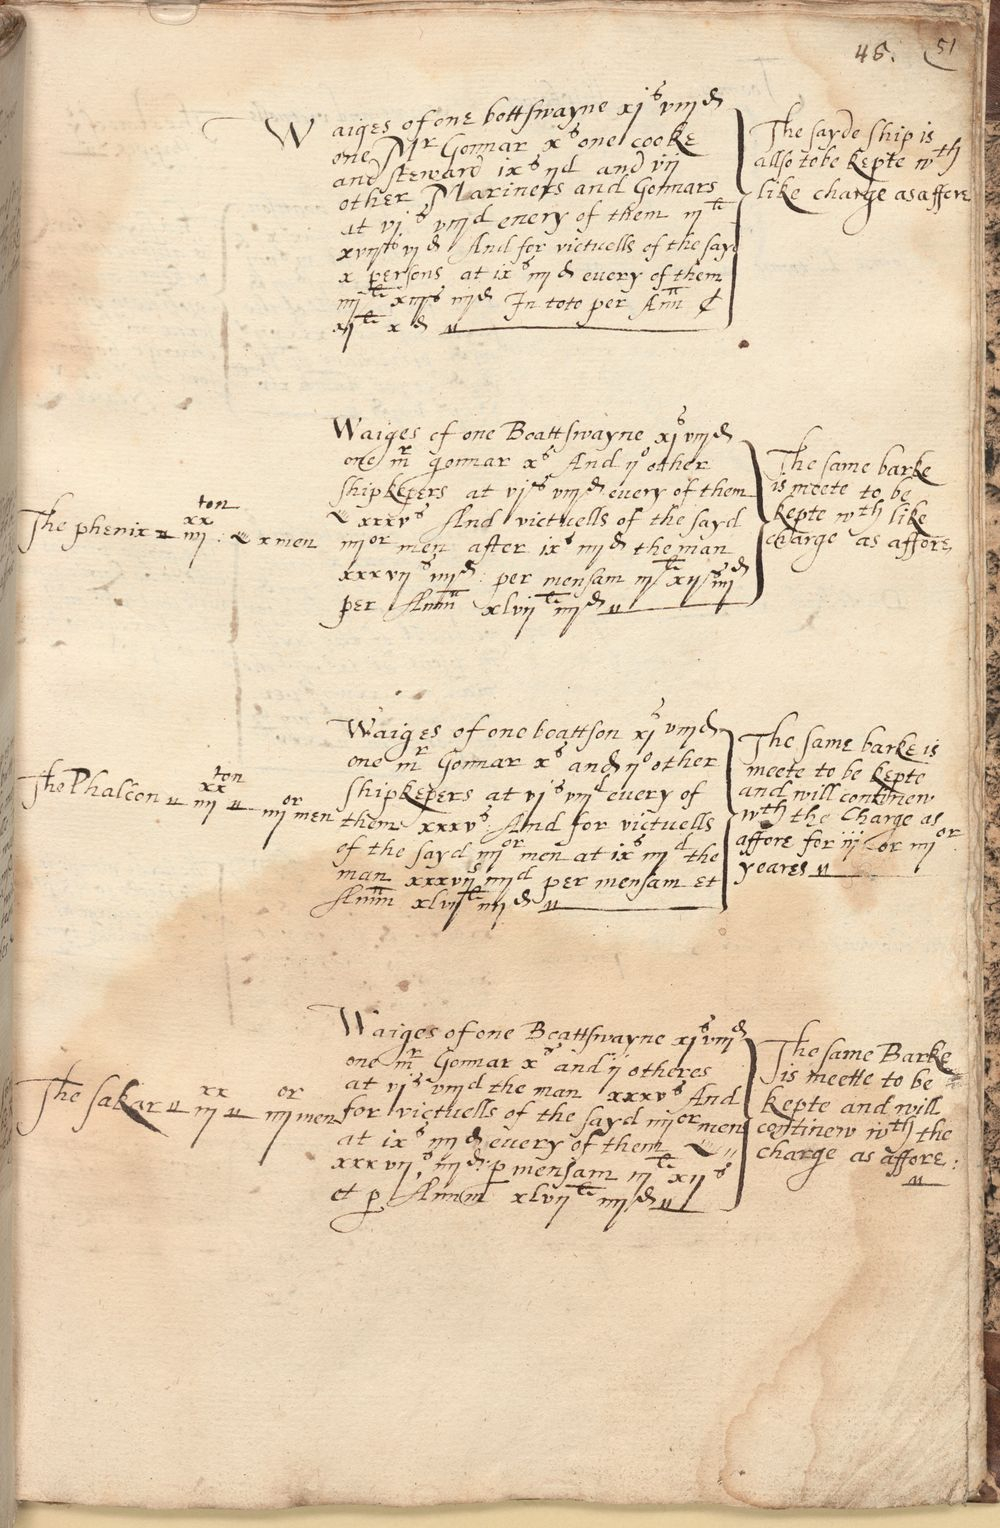 46. 51
Waiges of one bottswayne xj s viij d
one Mr Gonnar x s one cooke
and steward ix s ij d and vij
other Mariners and Gonnars
at vj s viij d every of them iij li
xvij s vj d And for victuells of the sayd
x persons at ix s iiij d every of them
iiij li xiij s iiij d In toto per Ann C
xj li x d
The sayde ship is
allso to be kepte wth
like charge as affore
The phenix xx iiij ton x men
Waiges of one Boattswayne xj s viij d
one mr gonnar x s And ij o other
shipkepers at vj s viij d every of them
xxxv s And victuells of the sayd
iiij or men after ix s iiij d the man
xxxvij s iiij d per mensam iij li xij s iiij d
per Annu xlvij li iiij d
The same barke
is meete to be
kepte wth like
charge as affore
The Phalcon xx iiij ton iiij or men
Waiges of one boattson xj s viij d
one mr Gonnar x s and ij o other
shipkepers at vj s viij d every of
them xxxv s And for victuells
of the sayd iiij or men at ix s iiij d the
man xxxvij s iiij d per mensam et
Annu xlvij li iiij d
The same barke is
meete to be kepte
and will continew
wth the Charge as
affore for iij or iiij or
yeares
The sakar xx iij iiij or men
Waiges of one Boattswayne xj s viij d
one mr Gonnar x s and ij otheres
at vj s viij d the man xxxv s And
for victuells of the sayd iiij or men
at ix s iiij d every of them
xxxvij s iiij d p mensam iij li xij s
et p Annu xlvij li iiij d
The same Barke
is meette to be
kepte and will
continew wth the
charge as affore